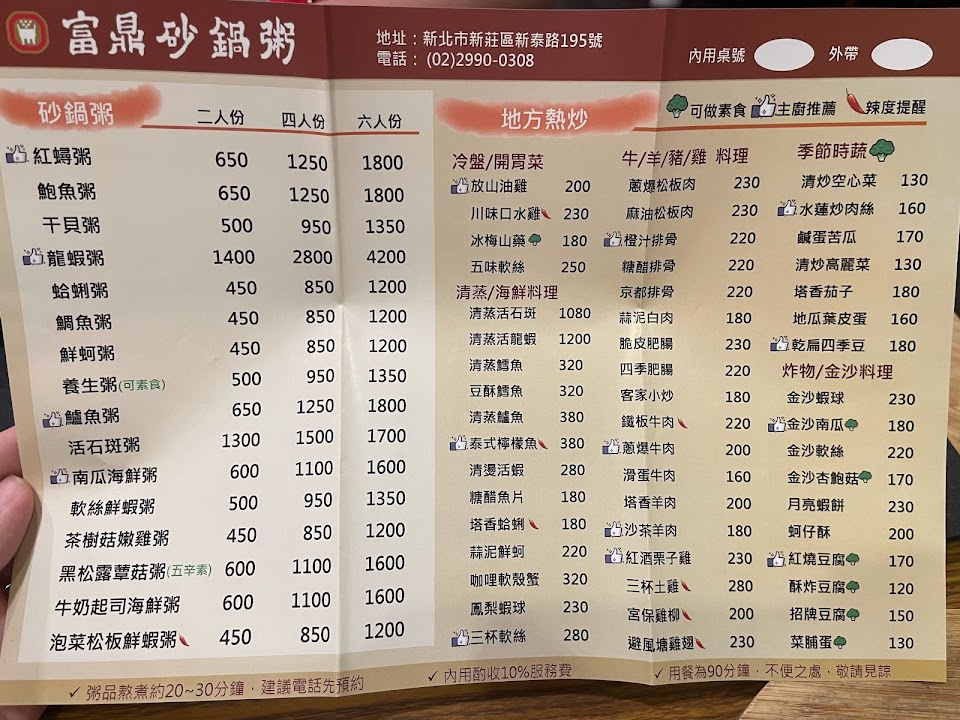 富鼎砂鍋粥
地址：新北市新莊區新泰路195號
電話：(02)2990-0308
內用桌號 外帶
砂鍋粥 二人份 四人份 六人份
紅蟳粥 650 1250 1800
鮑魚粥 650 1250 1800
干貝粥 500 950 1350
龍蝦粥 1400 2800 4200
蛤蜊粥 450 850 1200
鯛魚粥 450 850 1200
鮮蚵粥 450 850 1200
養生粥(可素食) 500 950 1350
鱸魚粥 650 1250 1800
活石斑粥 1300 1500 1700
南瓜海鮮粥 600 1100 1600
軟絲鮮蝦粥 500 950 1350
茶樹菇嫩雞粥 450 850 1200
黑松露蕈菇粥(五辛素) 600 1100 1600
牛奶起司海鮮粥 600 1100 1600
泡菜松板鮮蝦粥 450 850 1200
地方熱炒
可做素食 主廚推薦 辣度提醒
冷盤/開胃菜
放山油雞 200
川味口水雞 230
冰梅山藥 180
五味軟絲 250
清蒸/海鮮料理
清蒸活石斑 1080
清蒸活龍蝦 1200
清蒸鱈魚 320
豆酥鱈魚 320
清蒸鱸魚 380
泰式檸檬魚 380
清燙活蝦 280
糖醋魚片 180
塔香蛤蜊 180
蒜泥鮮蚵 220
咖哩軟殼蟹 320
鳳梨蝦球 230
三杯軟絲 280
牛/羊/豬/雞 料理
蔥爆松板肉 230
麻油松板肉 230
橙汁排骨 220
糖醋排骨 220
京都排骨 220
蒜泥白肉 180
脆皮肥腸 230
四季肥腸 220
客家小炒 180
鐵板牛肉 220
蔥爆牛肉 200
滑蛋牛肉 160
塔香羊肉 200
沙茶羊肉 180
紅酒栗子雞 230
三杯土雞 280
宮保雞柳 200
避風塘雞翅 230
季節時蔬
清炒空心菜 130
水蓮炒肉絲 160
鹹蛋苦瓜 170
清炒高麗菜 130
塔香茄子 180
地瓜葉皮蛋 160
乾扁四季豆 180
炸物/金沙料理
金沙蝦球 230
金沙南瓜 180
金沙軟絲 220
金沙杏鮑菇 170
月亮蝦餅 230
蚵仔酥 200
紅燒豆腐 170
酥炸豆腐 120
招牌豆腐 150
菜脯蛋 130
✓ 粥品熬煮約20~30分鐘，建議電話先預約
✓ 內用酌收10%服務費
✓ 用餐為90分鐘，不便之處，敬請見諒